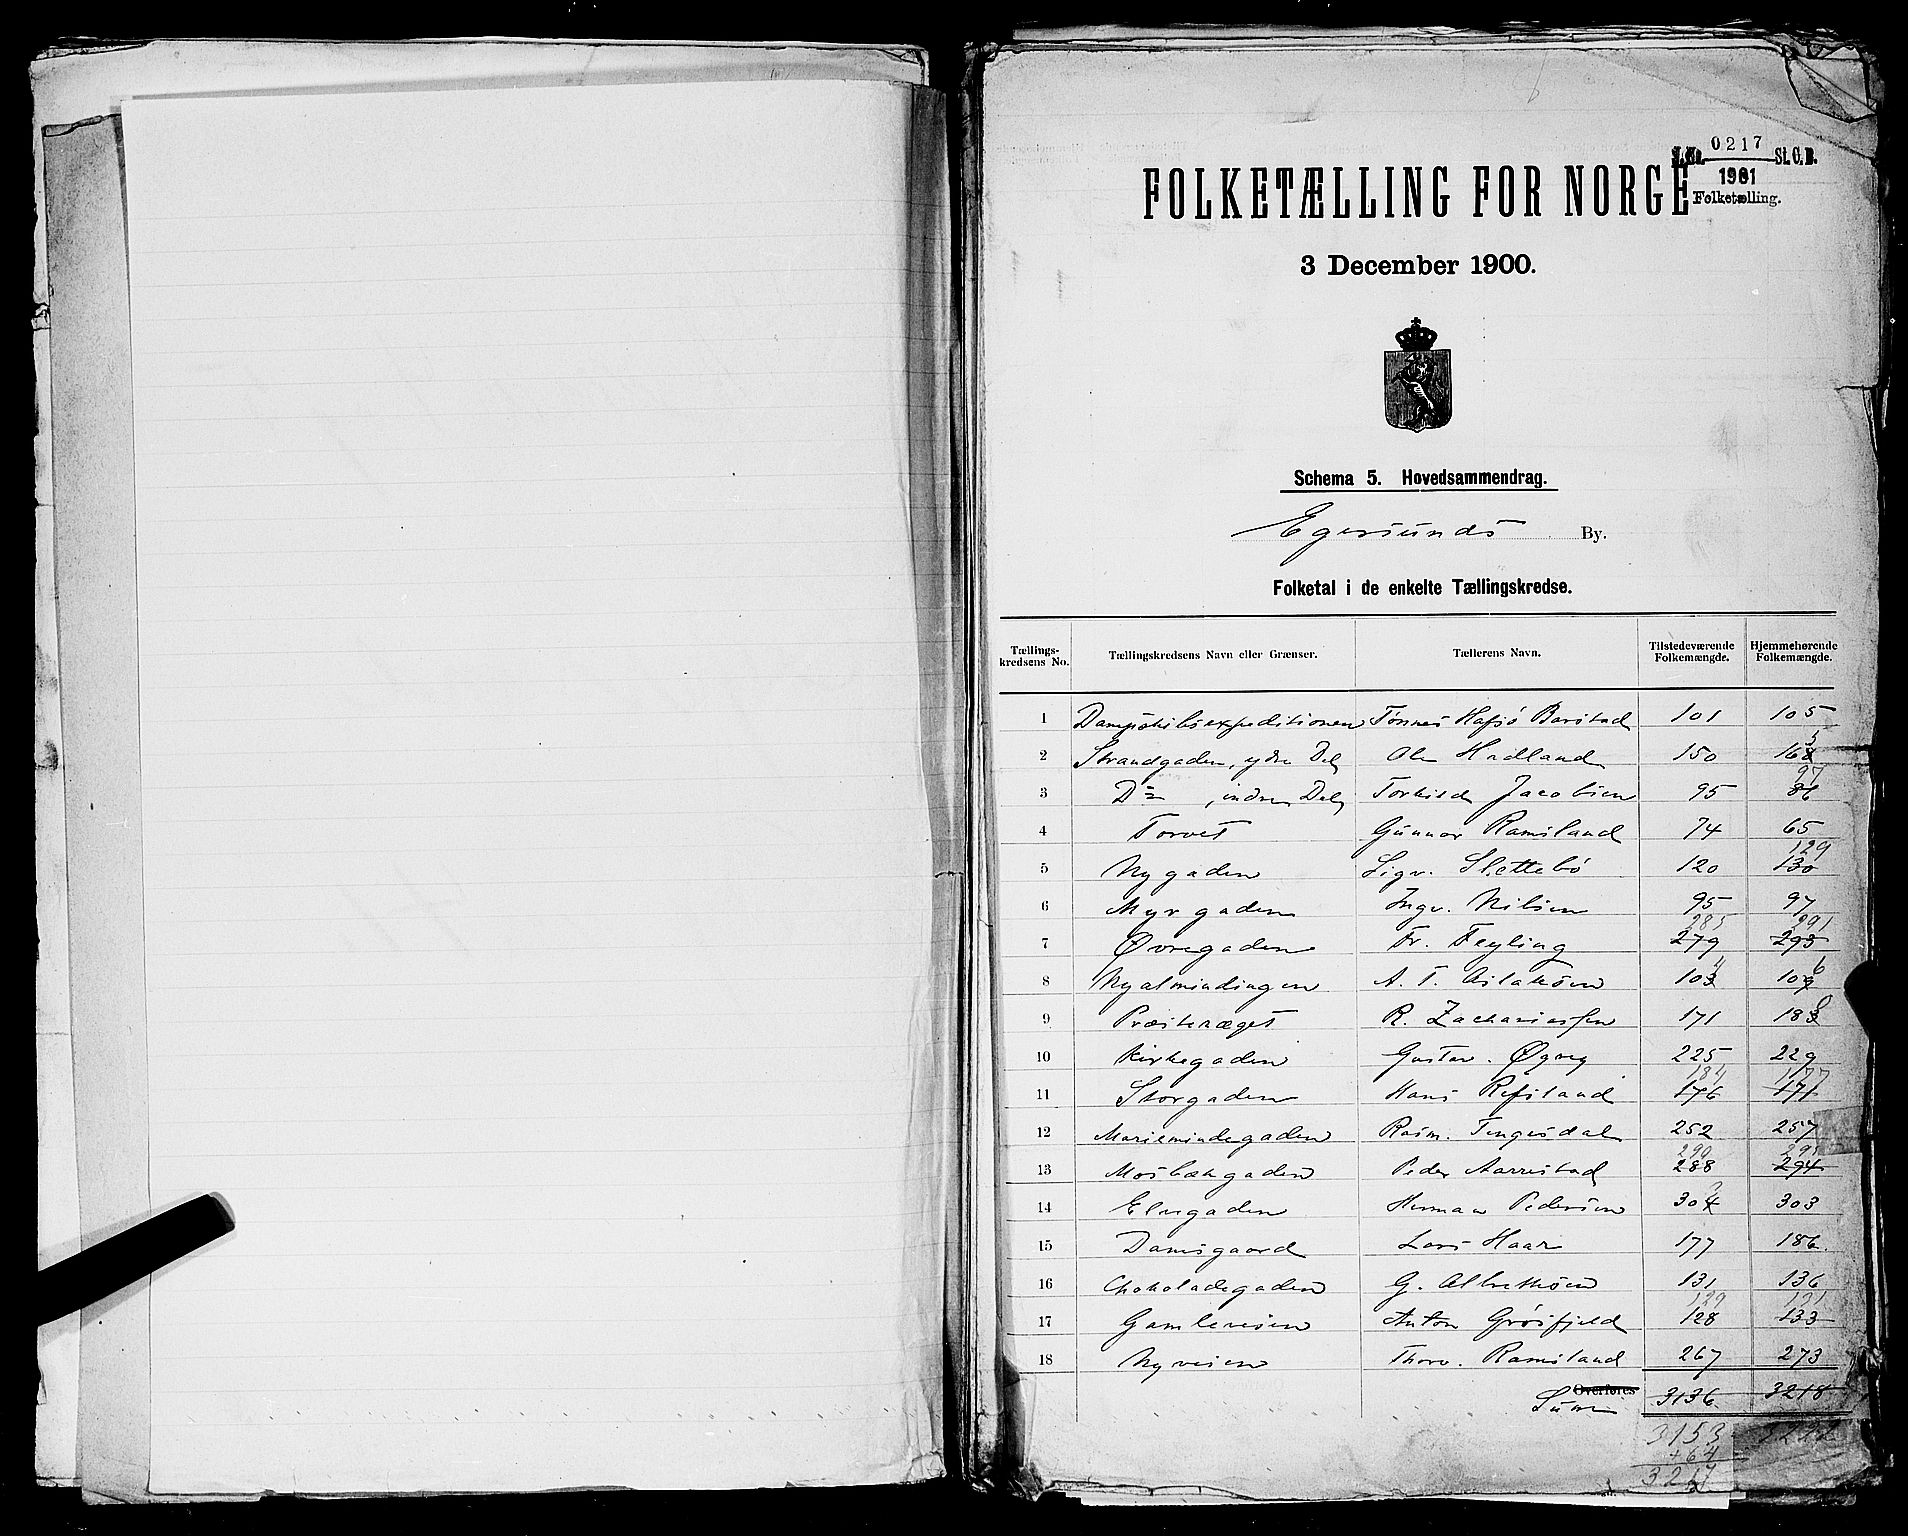 0217
J.No. St.C.B.
1901
Folketælling.
FOLKETÆLLING FOR NORGE
3 December 1900.
Schema 5. Hovedsammendrag.
Egersunds By.
Folketal i de enkelte Tællingskredse.
Tællings-kredsens No. Tællingskredsens Navn eller Grænser. Tællerens Navn. Tilstedeværende Folkemængde. Hjemmehørende Folkemængde.
1 Dampskibsexpeditionen Tønnes Hafsö Barstad 101 105
2 Strandgaden, ydre Del Ole Hadland 150 168 5
3 Do , indre Del Torkild Jacobsen 95 86 97
4 Torvet Gunnar Ramsland 74 65
5 Nygaden Sigv. Slettebö 120 130 129
6 Myrgaden Ingv. Nilsen 95 97
7 Øvregaden Fr. Feyling 279 285 293 291
8 Nyalmindingen A. T. Aslaksen 103 4 109 6
9 Præsteræget R. Zachariassen 171 183 0
10 Kirkegaden Gustav Øgrey 225 229
11 Storgaden Hans Refsland 176 184 171 177
12 Mariemindegaden Rasm. Tengesdal 252 257
13 Mosbækgaden Peder Aarrestad 288 290 294 295
14 Elvegaden Herman Pedersen 304 303
15 Damsgaard Lars Haar 177 186
16 Chokoladegaden G. Albretsen 131 136
17 Gamleveien Anton Grøsfjeld 128 129 133 131
18 Nyveien Thorv. Ramsland 267 273
Overføres Sum 3136 3218
3153
+64